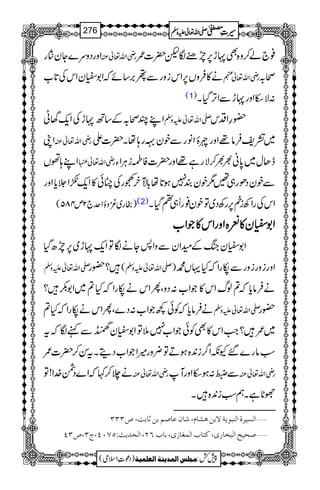 سیرتِ مصطفیٰ صلی اللہ تعالیٰ علیہ وسلم 276
فوج لے کر وہ بھی پہاڑ پر چڑھنے لگا لیکن حضرت عمر رضی اللہ تعالیٰ عنہ اور دوسرے جان نثار
صحابہ رضی اللہ تعالیٰ عنہم نے کافروں پر اس زور سے پتھر برسائے کہ ابوسفیان اس کی تاب
نہ لا سکا اور پہاڑ سے اتر گیا۔ (1)
حضور اقدس صلی اللہ تعالیٰ علیہ وسلم اپنے چند صحابہ کے ساتھ پہاڑ کی ایک گھاٹی
میں تشریف فرما تھے اور چہرۂ انور سے خون بہہ رہا تھا۔ حضرت علی رضی اللہ تعالیٰ عنہ اپنی
ڈھال میں پانی بھر بھر کر لا رہے تھے اور حضرت فاطمہ زہراء رضی اللہ تعالیٰ عنہا اپنے ہاتھوں
سے خون دھو رہی تھیں مگر خون بند نہیں ہوتا تھا بالآخر کھجور کی چٹائی کا ایک ٹکڑا جلایا اور
اس کی راکھ زخم پر رکھ دی تو خون فوراً ہی تھم گیا۔ (2) (بخاری غزوۂ احد ج۲ ص۵۸۴)
ابوسفیان کا نعرہ اور اس کا جواب
ابوسفیان جنگ کے میدان سے واپس جانے لگا تو ایک پہاڑی پر چڑھ گیا
اور زور زور سے پکارا کہ کیا یہاں محمد (صلی اللہ تعالیٰ علیہ وسلم) ہیں؟ حضور صلی اللہ تعالیٰ علیہ وسلم
نے فرمایا کہ تم لوگ اس کا جواب نہ دو، پھر اس نے پکارا کہ کیا تم میں ابوبکر ہیں؟
حضور صلی اللہ تعالیٰ علیہ وسلم نے فرمایا کہ کوئی کچھ جواب نہ دے، پھر اس نے پکارا کہ کیا تم
میں عمر ہیں؟ جب اس کا بھی کوئی جواب نہیں ملا تو ابوسفیان گھمنڈ سے کہنے لگا کہ یہ
سب مارے گئے کیونکہ اگر زندہ ہوتے تو ضرور میرا جواب دیتے۔ یہ سن کر حضرت عمر
رضی اللہ تعالیٰ عنہ سے ضبط نہ ہو سکا اور آپ رضی اللہ تعالیٰ عنہ نے چلا کر کہا کہ اے دشمن خدا! تو
جھوٹا ہے۔ ہم سب زندہ ہیں۔
السیرة النبویة لابن هشام، شان عاصم بن ثابت، ص۳۳۳
صحیح البخاری، کتاب المغازی، باب ۲۶، الحدیث:۴۰۷۵، ج۳، ص۴۳
پیش کش: مجلس المدینة العلمیة (دعوت اسلامی)